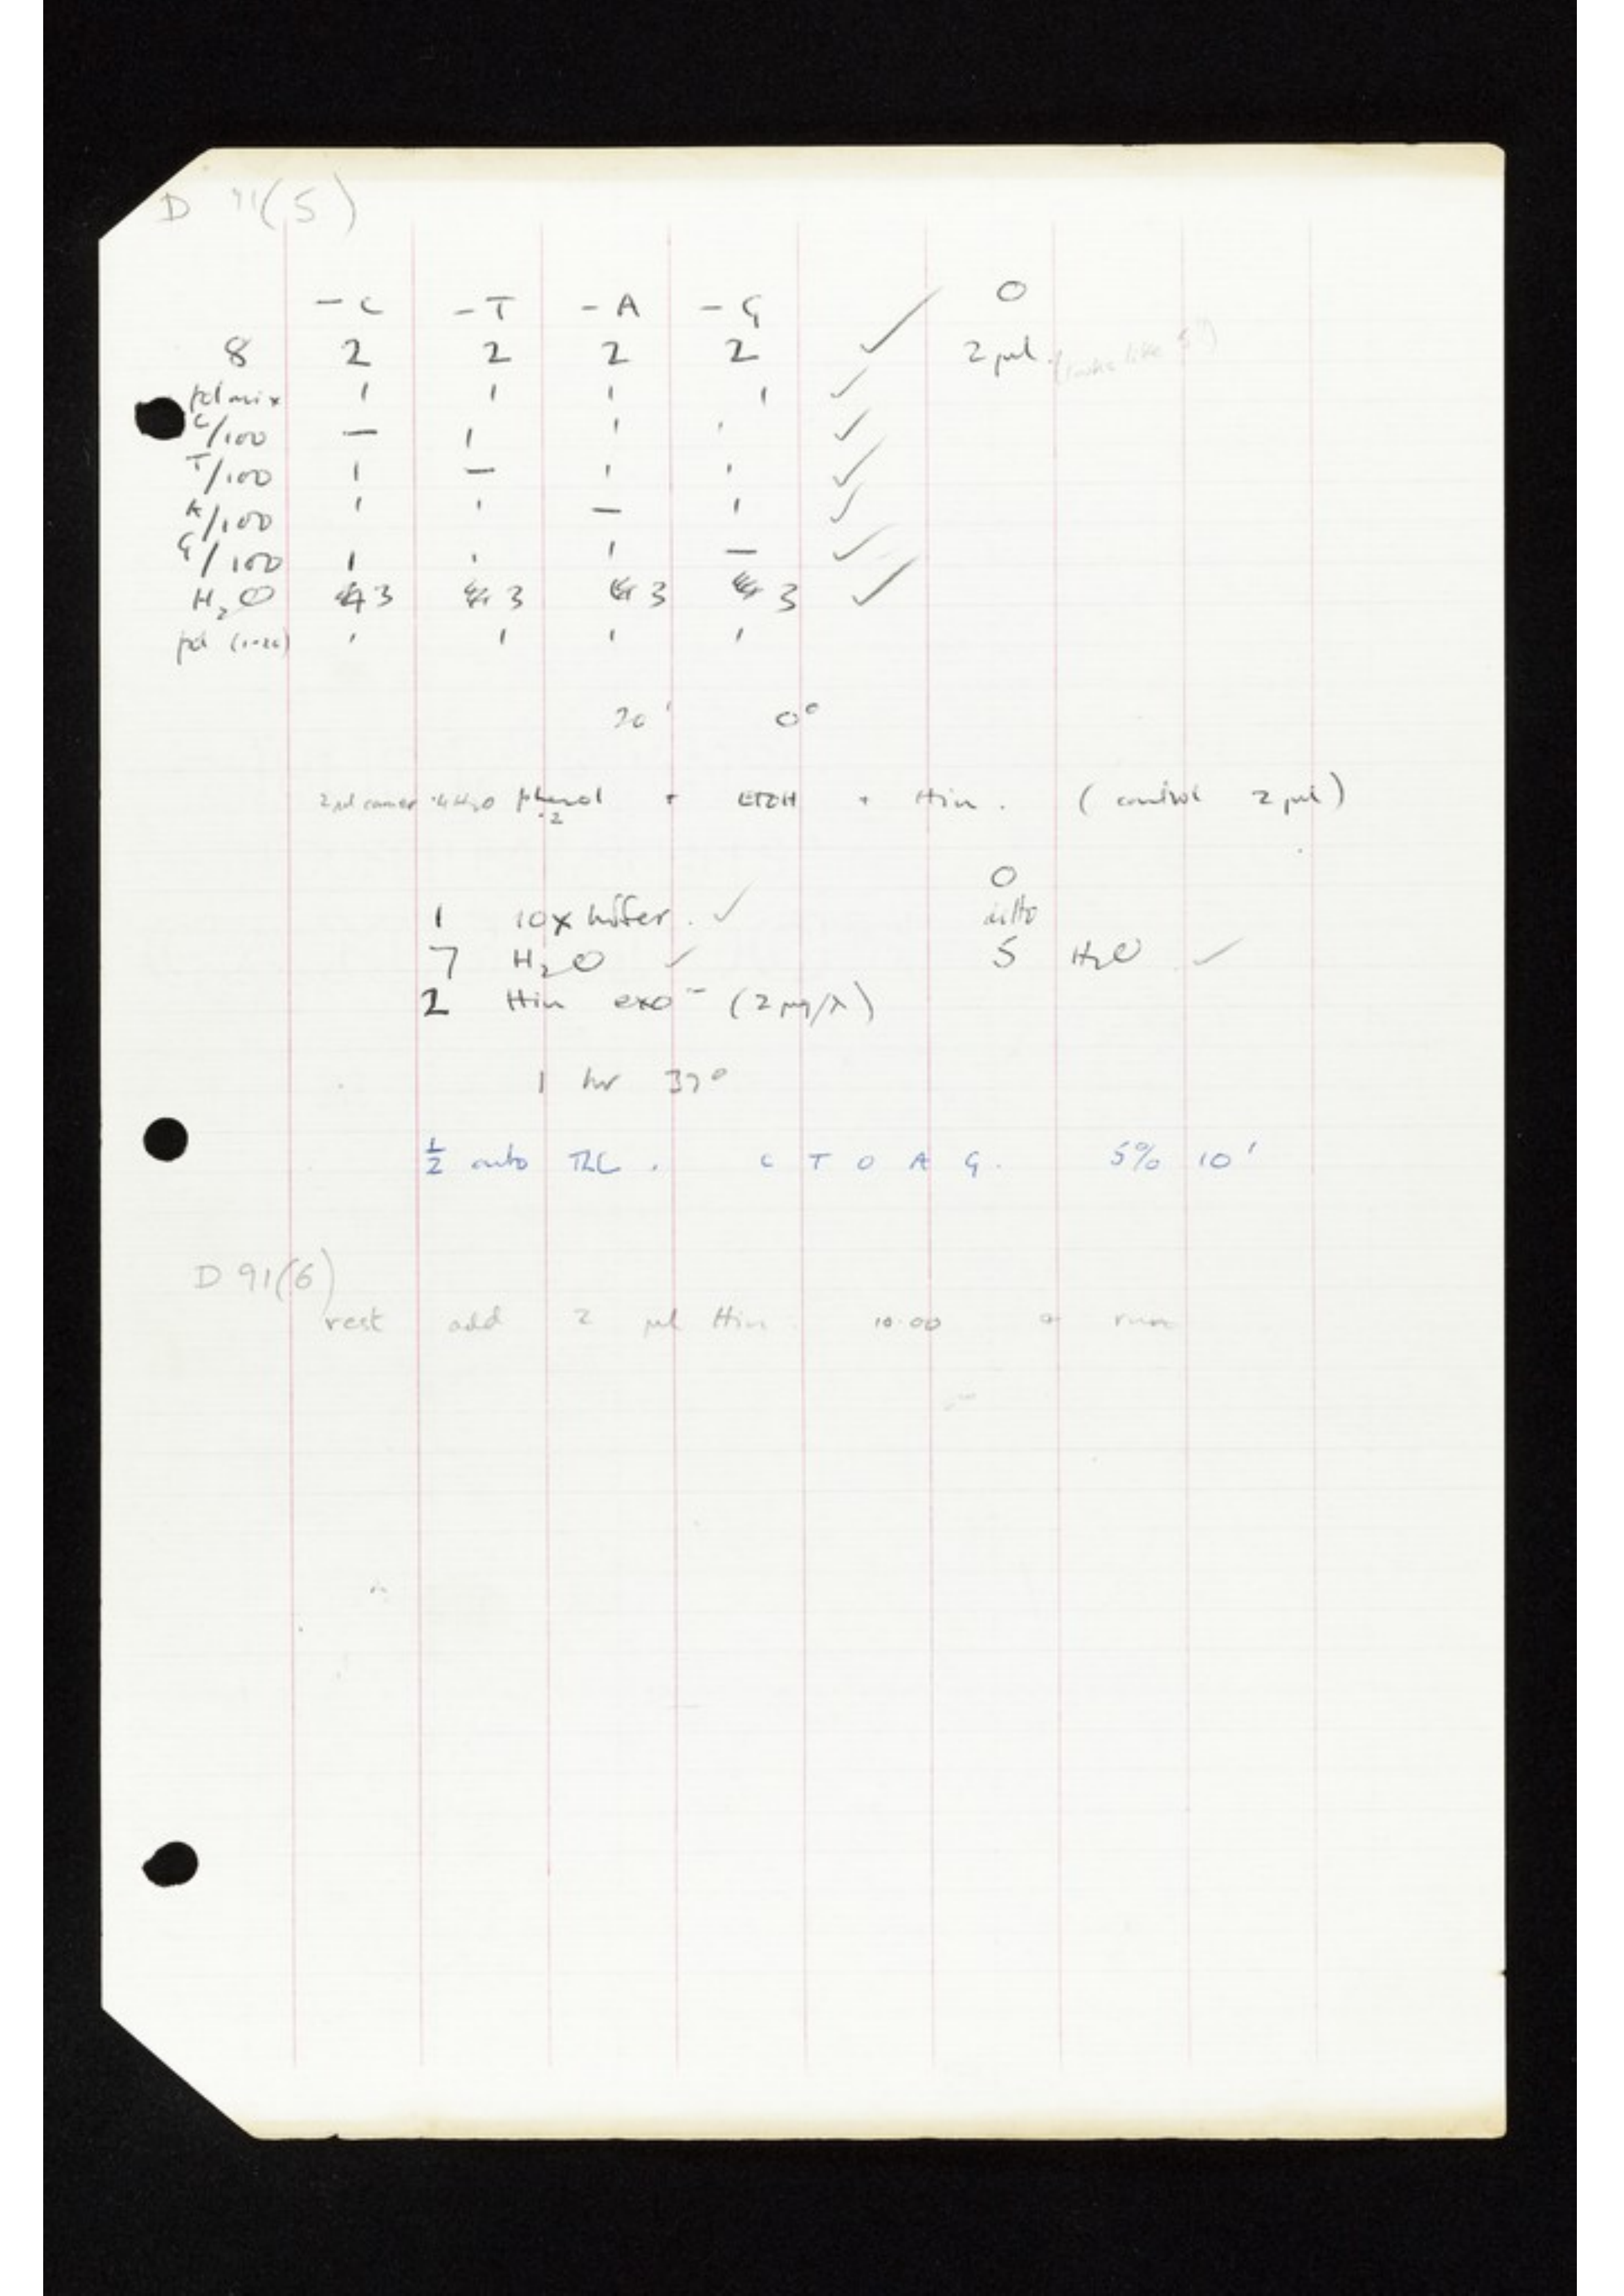 D 91(5)
-C -T -A -G 0
8 2 2 2 2 ✓ 2 μl (looks like 5!)
pol mix 1 1 1 1 ✓
C/100 — 1 1 1 ✓
T/100 1 — 1 1 ✓
A/100 1 1 — 1 ✓
G/100 1 1 1 — ✓
H2O 3 3 3 3 ✓
pol 1 1 1 1
20' 0°
2 μl carrier H2O phenol + ETOH + Hin. (control 2 μl)
.2
0
1 10x buffer. ✓ ditto
7 H2O ✓ 5 H2O ✓
2 Hin exo⁻ (2 μg/λ)
1 hr 37°
½ onto TLC. C T O A G. 5% 10'
D 91(6)
rest add 2 μl Hin. 10.00 + run